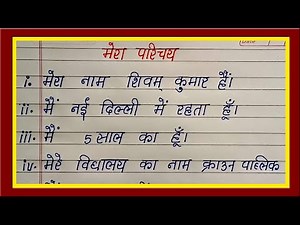 मेरा परिचय
i. मेरा नाम शिवम् कुमार है।
ii. मैं नई दिल्ली में रहता हूँ।
iii. मैं 5 साल का हूँ।
iv. मेरे विद्यालय का नाम क्राउन पब्लिक